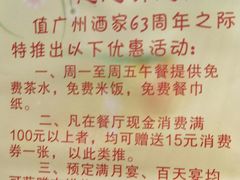 值广州酒家63周年之际
特推出以下优惠活动：
一、周一至周五午餐提供免
费茶水，免费米饭，免费餐巾
纸。
二、凡在餐厅现金消费满
100元以上者，均可赠送15元消费
券一张，以此类推。
三、预定满月宴、百天宴均